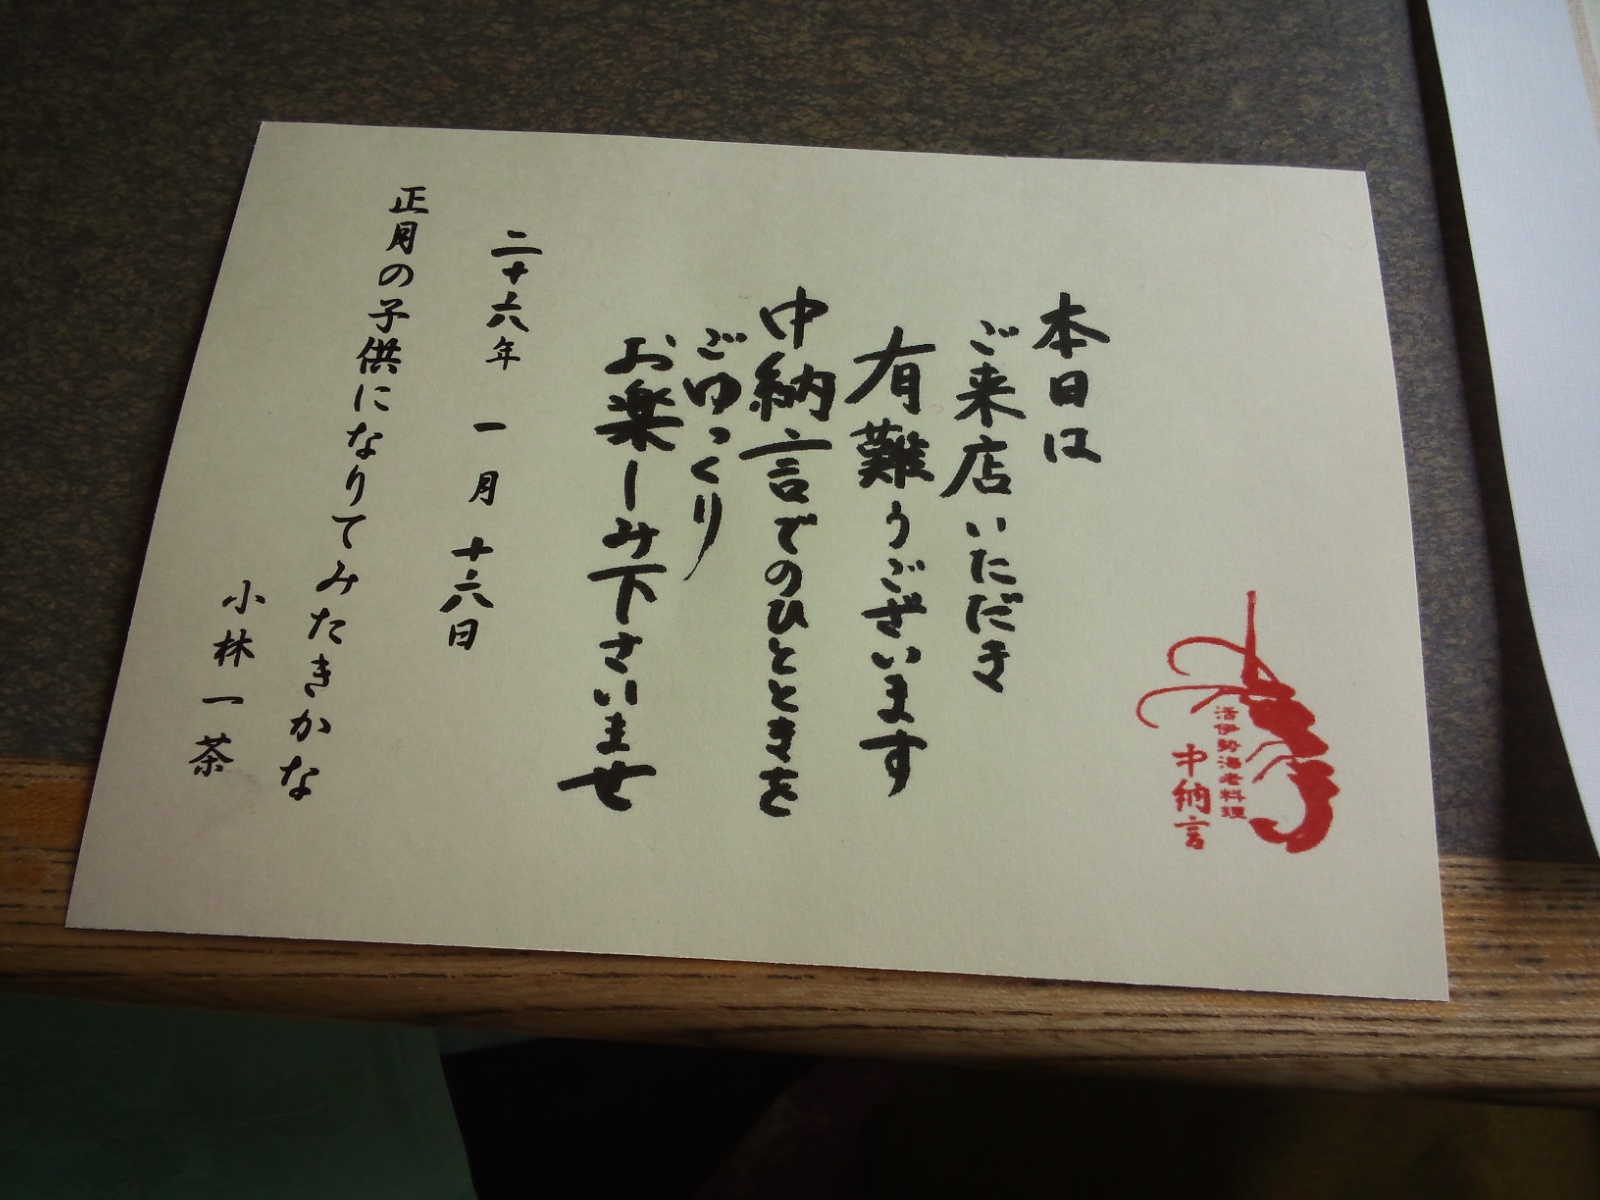 活伊勢海老料理
中納言
本日は
ご来店いただき
有難うございます
中納言でのひとときを
ごゆっくり
お楽しみ下さいませ
二十六年 一月 十六日
正月の子供になりてみたきかな
小林一茶